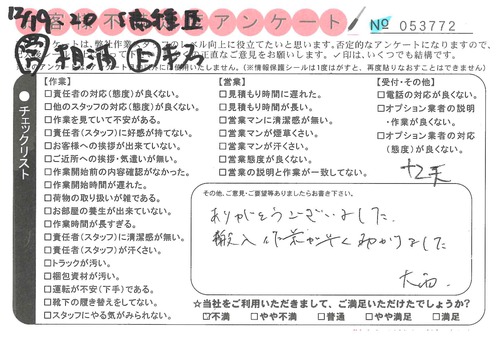 12/19、20
お客様不満足度アンケート
№ 053772
ートは、弊社作業スタッフのレベル向上に役立てたいと思います。否定的なアンケートになりますので、
正直なご意見をお願いします。✓印は、いくつでも結構です。
使用いたしません。(※情報保護シールは1度はがすと、再度貼りなおすことはできません)
チェックリスト
【作業】
□責任者の対応(態度)が良くない。
□他のスタッフの対応(態度)が良くない。
□作業を見ていて不安がある。
□責任者(スタッフ)に好感が持てない。
□お客様への挨拶が出来ていない。
□ご近所への挨拶・気遣いが無い。
□作業開始前の内容確認がなかった。
□作業開始時間が遅れた。
□荷物の取り扱いが雑である。
□お部屋の養生が出来ていない。
□作業時間が長すぎる。
□責任者(スタッフ)に清潔感が無い。
□責任者(スタッフ)が汗くさい。
□トラックが汚い。
□梱包資材が汚い。
□運転が不安(下手)である。
□靴下の履き替えをしてない。
□スタッフにやる気がみられない。
【営業】
□見積もり時間に遅れた。
□見積もり時間が長い。
□営業マンに清潔感が無い。
□営業マンが煙草くさい。
□営業マンが汗くさい。
□営業態度が良くない。
□営業の説明と作業が一致してない。
【受付・その他】
□電話の対応が良くない。
□オプション業者の説明
・作業が良くない。
□オプション業者の対応
(態度)が良くない。
その他、ご意見・ご要望等ありましたらお書き下さい。
ありがとうございました。
搬入作業が早くみかりました
大西
☆当社をご利用いただきまして、ご満足いただけたでしょうか?
☑不満 □やや不満 □普通 □やや満足 □満足